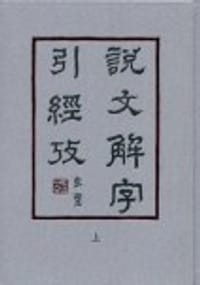 說文解字
引經攷
上